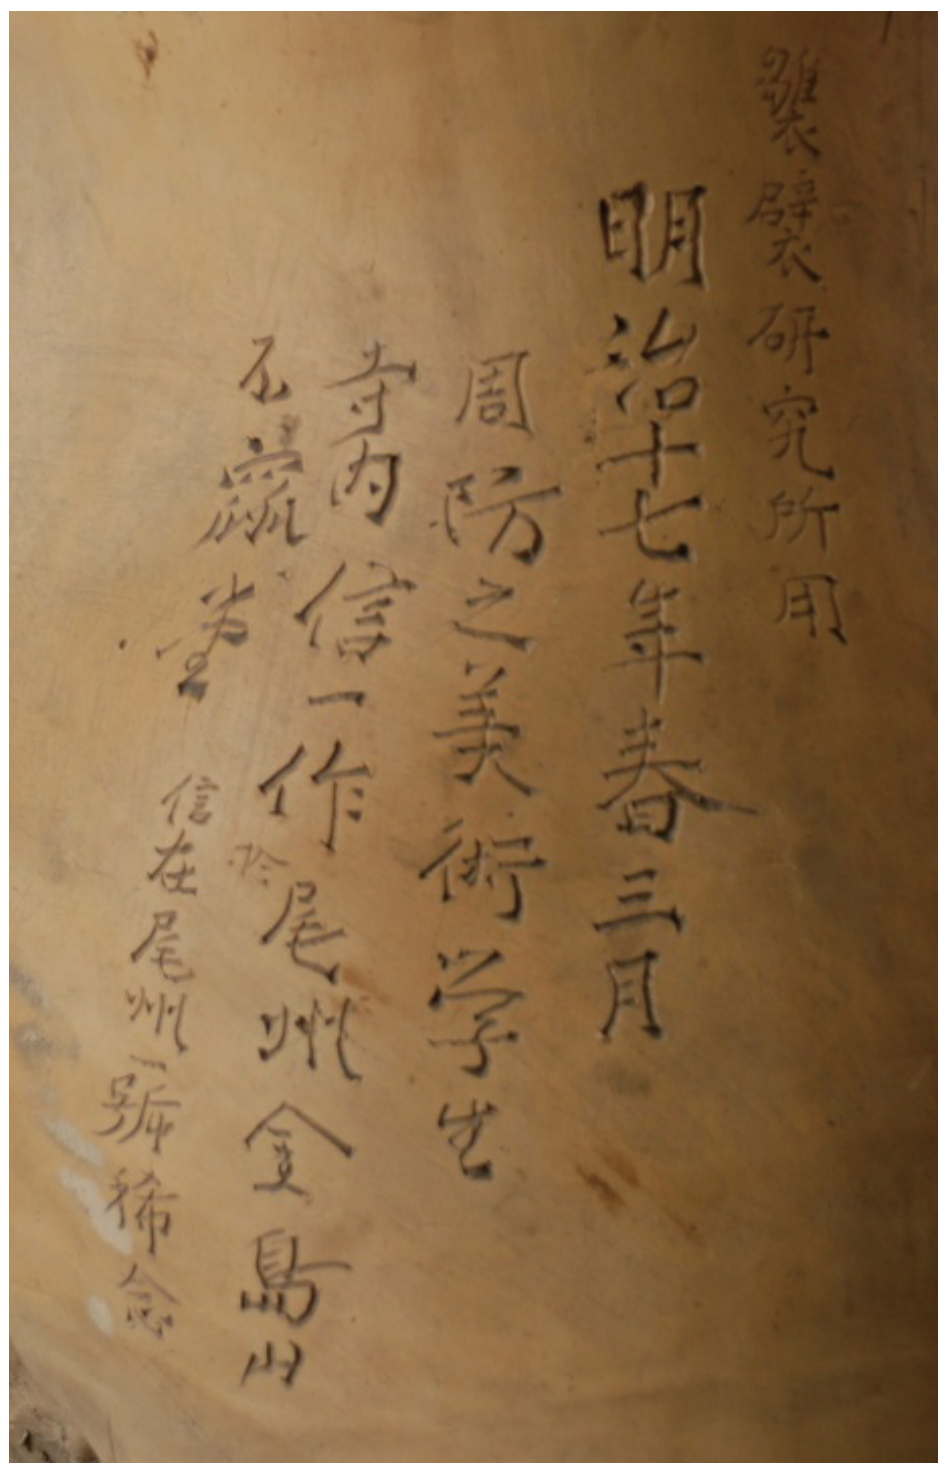 襞研究所用
明治十七年春三月
周防之美術学生
寺内信一作於尾州金島山
信在尾州一號稀念